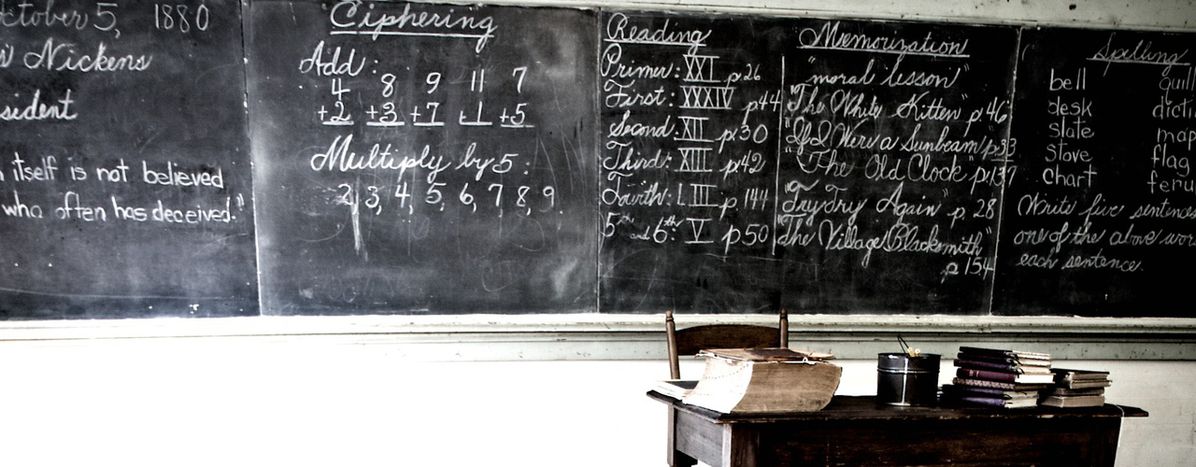 ctober 5, 1880
s' Nickens
sident
itself is not believed
who often has deceived."
Ciphering
Add:
4 8 9 11 7
+2 +3 +7 -1 +5
Multiply by 5:
2, 3, 4, 5, 6, 7 8, 9
Reading
Primer: XXI p.26
First: XXXIV p44
Second: XII p.30
Third: XIII p.42
Fourth: LIII p.144
5th 6th: V p.50
Memorization
"moral lesson"
"The White Kitten" p.46
"If I Were a Sunbeam" p.33
"The Old Clock" p.137
"Try Try Again" p. 28
"The Village Blacksmith"
p 154
Spelling
bell quill
desk dicti
slate map
stove flag
chart feru
Write five sentenc
one of the above wor
each sentence.